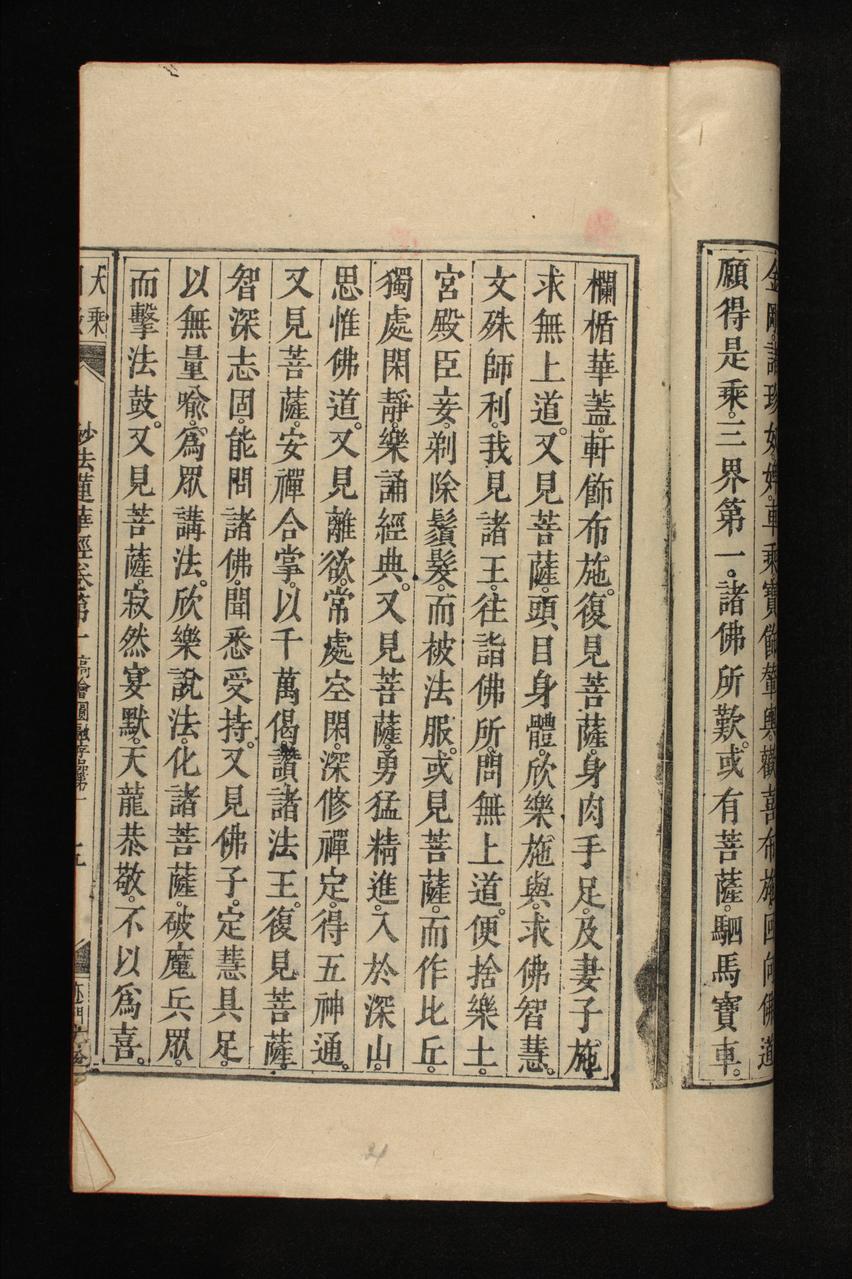 金剛諸珍奴婢車乘寶飾輦輿歡喜布施回向佛道
願得是乘。三界第一。諸佛所歎。或有菩薩。駟馬寶車。
欄楯華蓋。軒飾布施。復見菩薩。身肉手足。及妻子施。
求無上道。又見菩薩。頭目身體。欣樂施與。求佛智慧。
文殊師利。我見諸王。往詣佛所。問無上道。便捨樂土。
宮殿臣妾。剃除鬚髮。而被法服。或見菩薩。而作比丘。
獨處閑靜。樂誦經典。又見菩薩。勇猛精進。入於深山。
思惟佛道。又見離欲。常處空閑。深修禪定。得五神通。
又見菩薩。安禪合掌。以千萬偈。讚諸法王。復見菩薩。
智深志固。能問諸佛。聞悉受持。又見佛子。定慧具足。
以無量喻。爲眾講法。欣樂說法。化諸菩薩。破魔兵眾。
而擊法鼓。又見菩薩。寂然宴默。天龍恭敬。不以爲喜。
大乘
妙法蓮華經卷第一